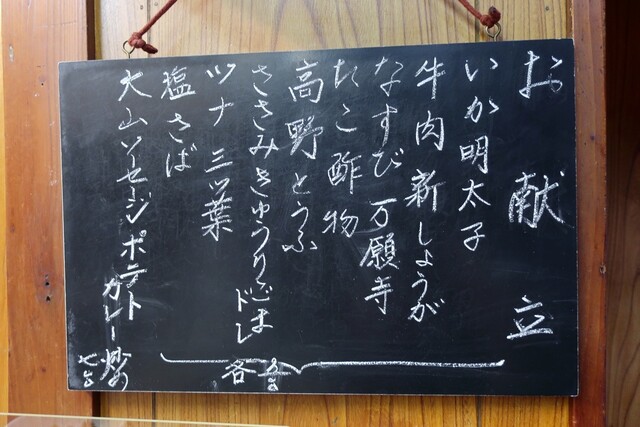 お献立
いか明太子
牛肉新しょうが
なすび万願寺
たこ酢物
高野とうふ
ささみきゅうりごまドレ
ツナ三ッ葉
塩さば
各
大山ソーセージポテトカレー炒め